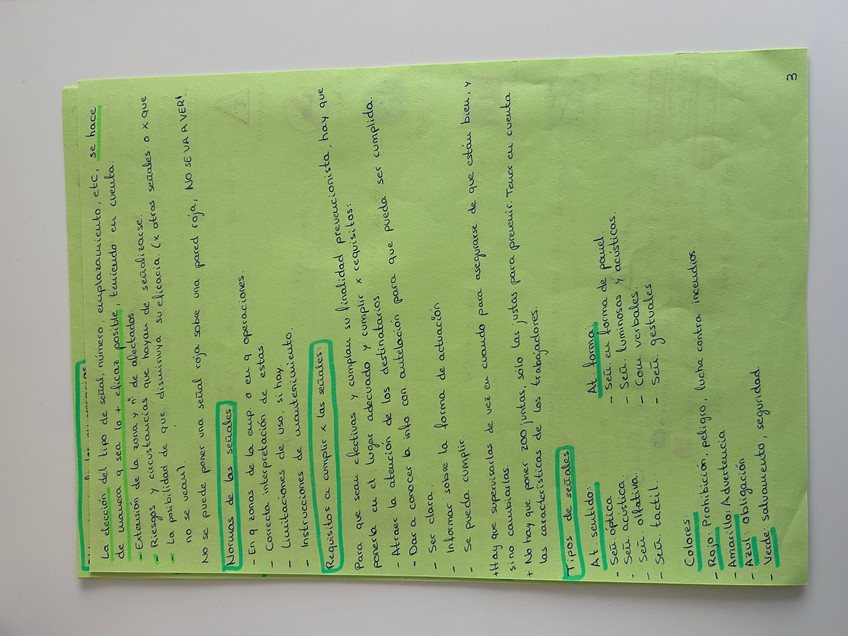 La elección del tipo de señal, número, emplazamiento, etc, se hace
de manera q sea lo + eficaz posible, teniendo en cuenta:
- Extensión de la zona y nº de afectados.
- Riesgos y circunstancias que hayan de señalizarse.
- La posibilidad de que disminuya su eficacia. (x otras señales o x que
no se vean).
No se puede poner una señal roja sobre una pared roja, NO SE VA A VER!
Normas de las señales
- En q zonas de la emp. o en q operaciones.
- Correcta interpretación de estas
- Limitaciones de uso, si hay.
- Instrucciones de mantenimiento.
Requisitos a cumplir x las señales:
Para que sean efectivas y cumplan su finalidad prevencionista, hay que
ponerla en el lugar adecuado y cumplir x requisitos:
- Atraer la atención de los destinatarios
- Dar a conocer la info con antelación para que pueda ser cumplida.
- Ser clara.
- Informar sobre la forma de actuación
- Se pueda cumplir
+ Hay que supervisarlas de vez en cuando para asegurarse de que están bien, y
sino cambiarlas.
+ No hay que poner 200 juntas, solo las justas para prevenir. Tener en cuenta
las características de los trabajadores.
Tipos de señales:
At sentido:
- Señ óptica
- Señ acústica
- Señ olfativa.
- Señ tactil.
At forma:
- Señ en forma de panel.
- Señ luminosas y acústicas.
- Com verbales
- Señ gestuales
Colores:
- Rojo: Prohibición, peligro, lucha contra incendios.
- Amarillo: Advertencia
- Azul: obligación
- Verde: salvamento, seguridad
3